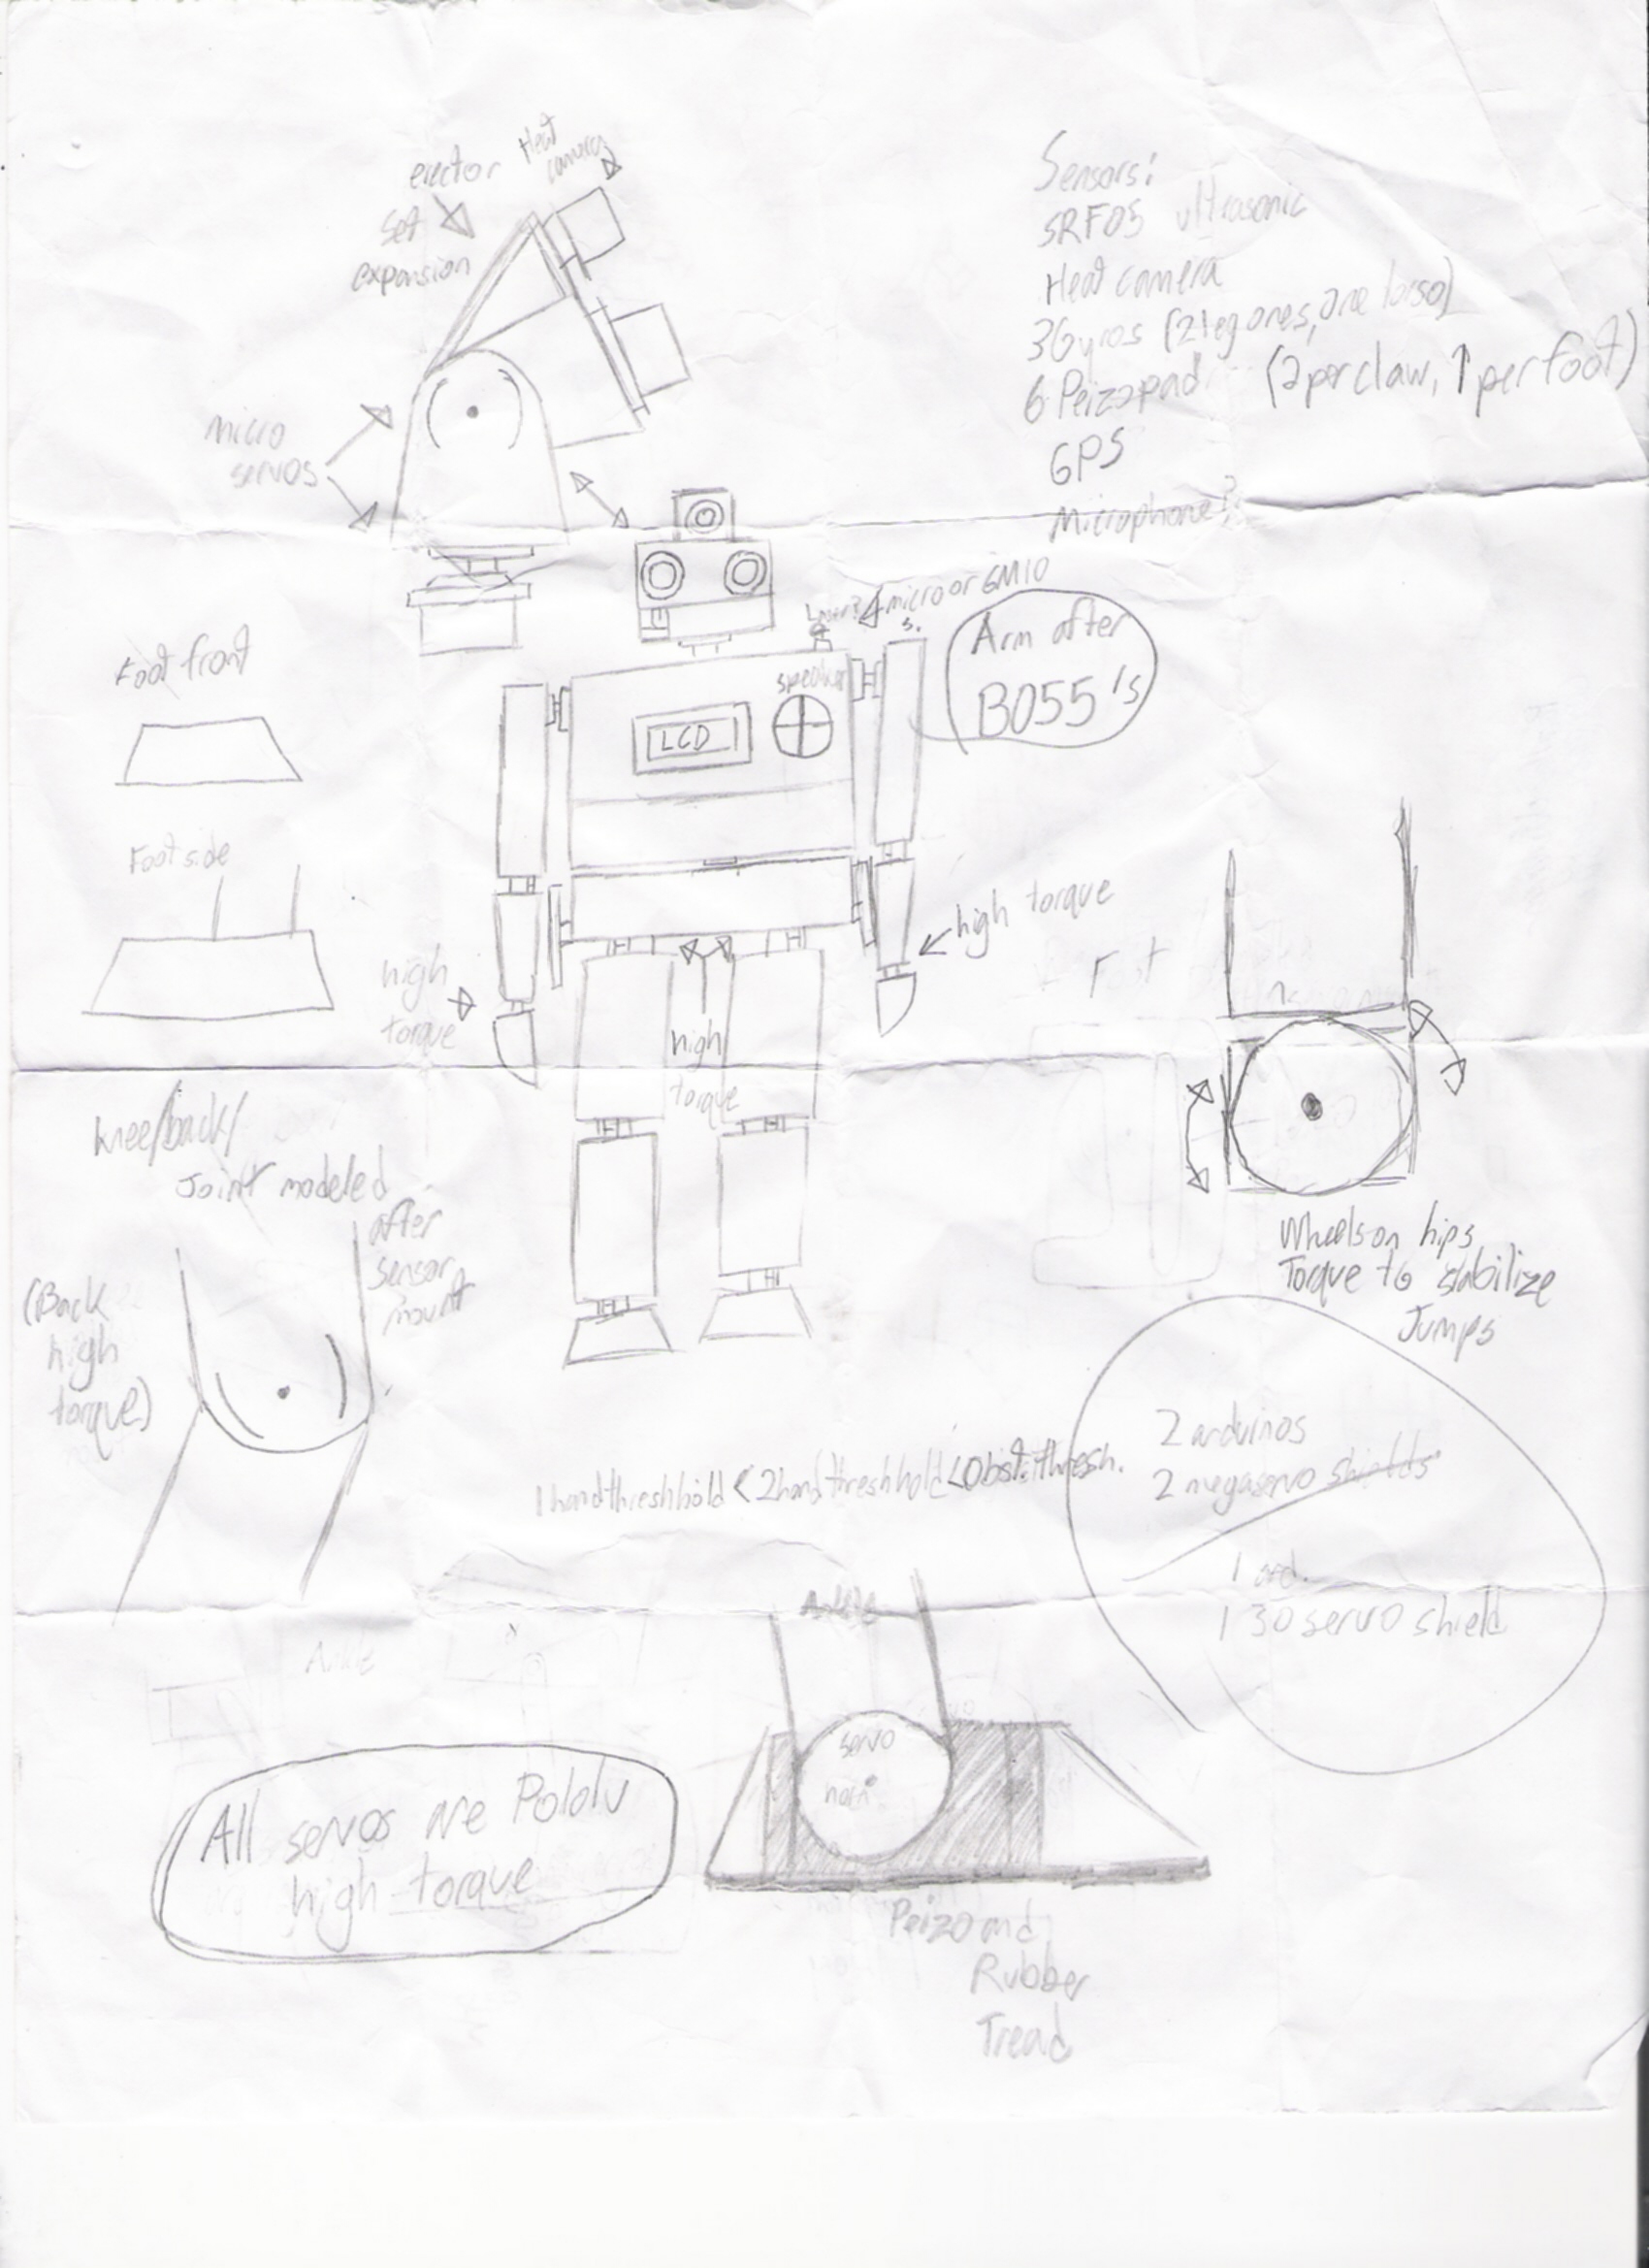 erector
set
expansion
Heat
camera
Sensors:
SRF05 ultrasonic
Heat camera
3Gyros (2 leg ones, one torso)
6 Peizopad (2 per claw, 1 per foot)
GPS
Microphone?
micro
servos
micro or GM10
s.
Arm after
B055's
speaker
LCD
Foot front
Foot side
high torque
high
torque
high
torque
Foot
knee/back/
Joint modeled
after
sensor
mount
(Back
high
torque)
Wheels on hips
Torque to stabilize
Jumps
1handthreshhold < 2handthreshhold < Obst.thresh.
2 arduinos
2 megaservo shields
1 ard.
1 30 servo shield
Ankle
Ankle
servo
horn
All servos are Pololu
high torque
Peizo and
Rubber
Tread